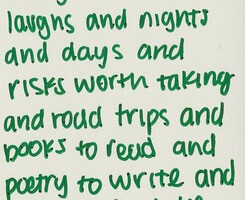 laughs and nights
and days and
risks worth taking
and road trips and
books to read and
poetry to write and